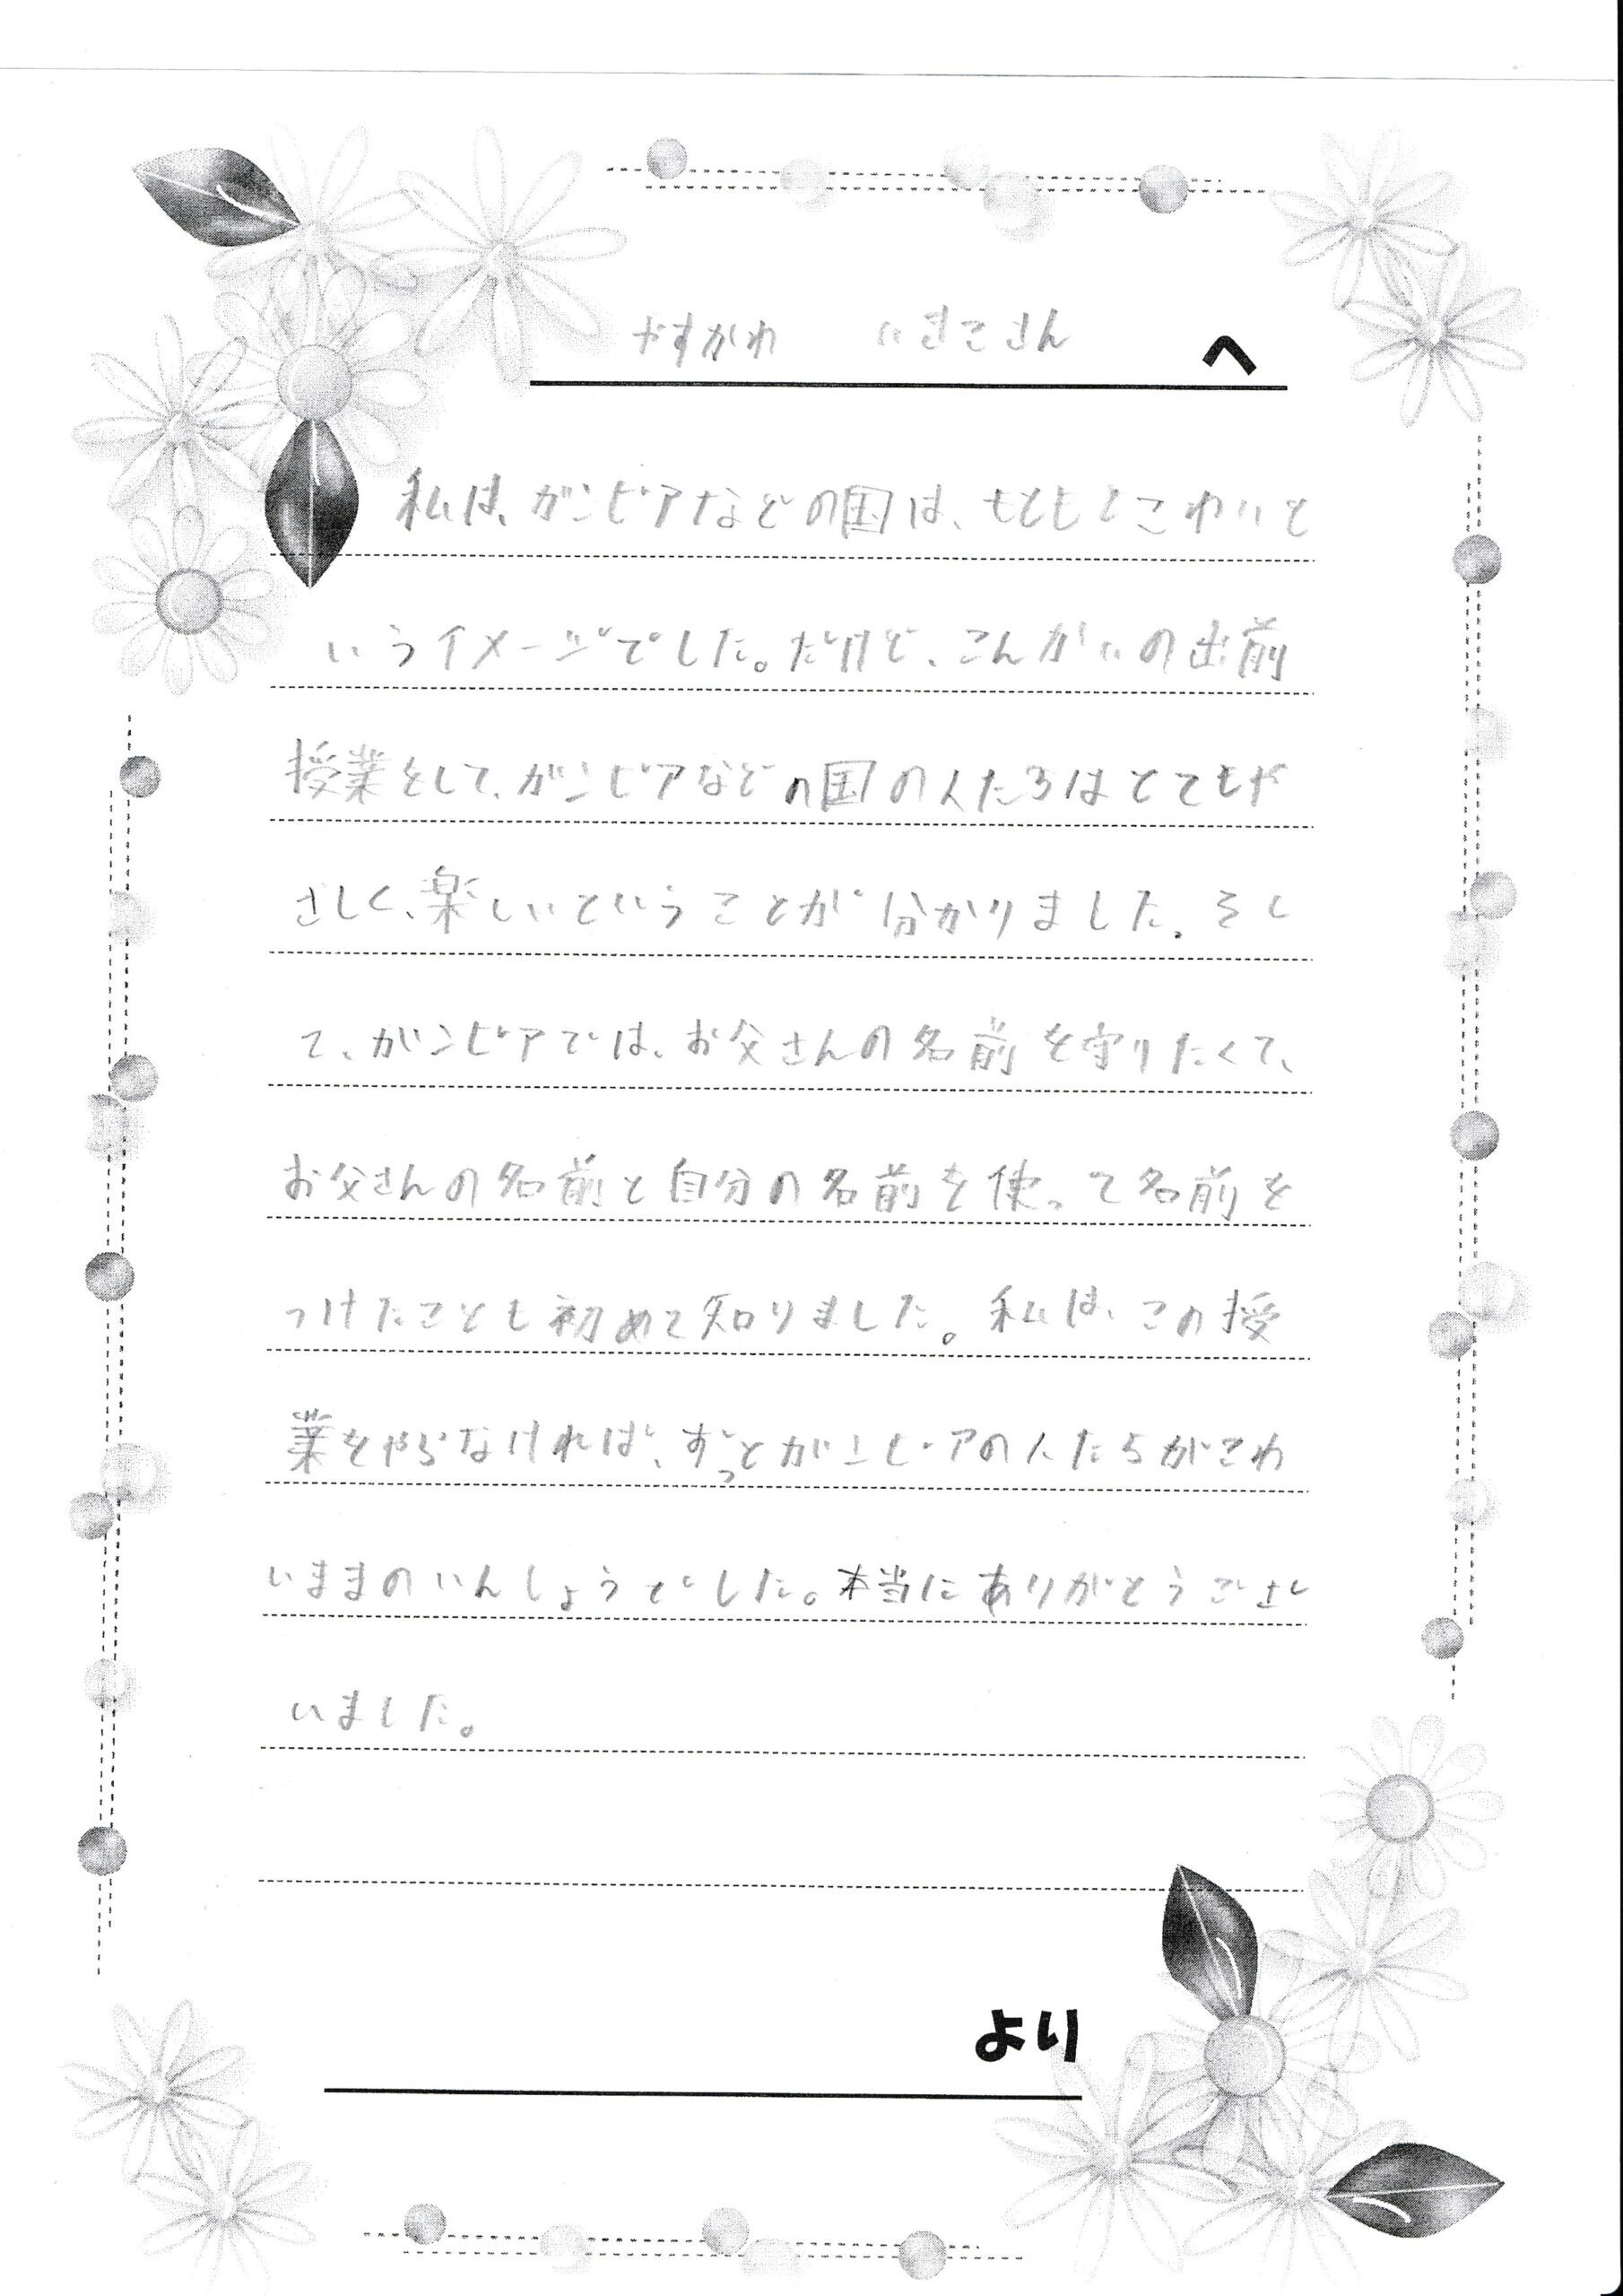 やすかわ いさこさん へ
私は、ガンビアなどの国は、もともとこわいと
いうイメージでした。だけど、こんかいの出前
授業をして、ガンビアなどの国の人たちはとてもや
さしく、楽しいということが分かりました。そし
て、ガンビアでは、お父さんの名前を守りたくて、
お父さんの名前と自分の名前を使って名前を
つけたことも初めて知りました。私は、この授
業をやらなければ、ずっとガンビアの人たちがこわ
いままのいんしょうでした。本当にありがとうござ
いました。
より